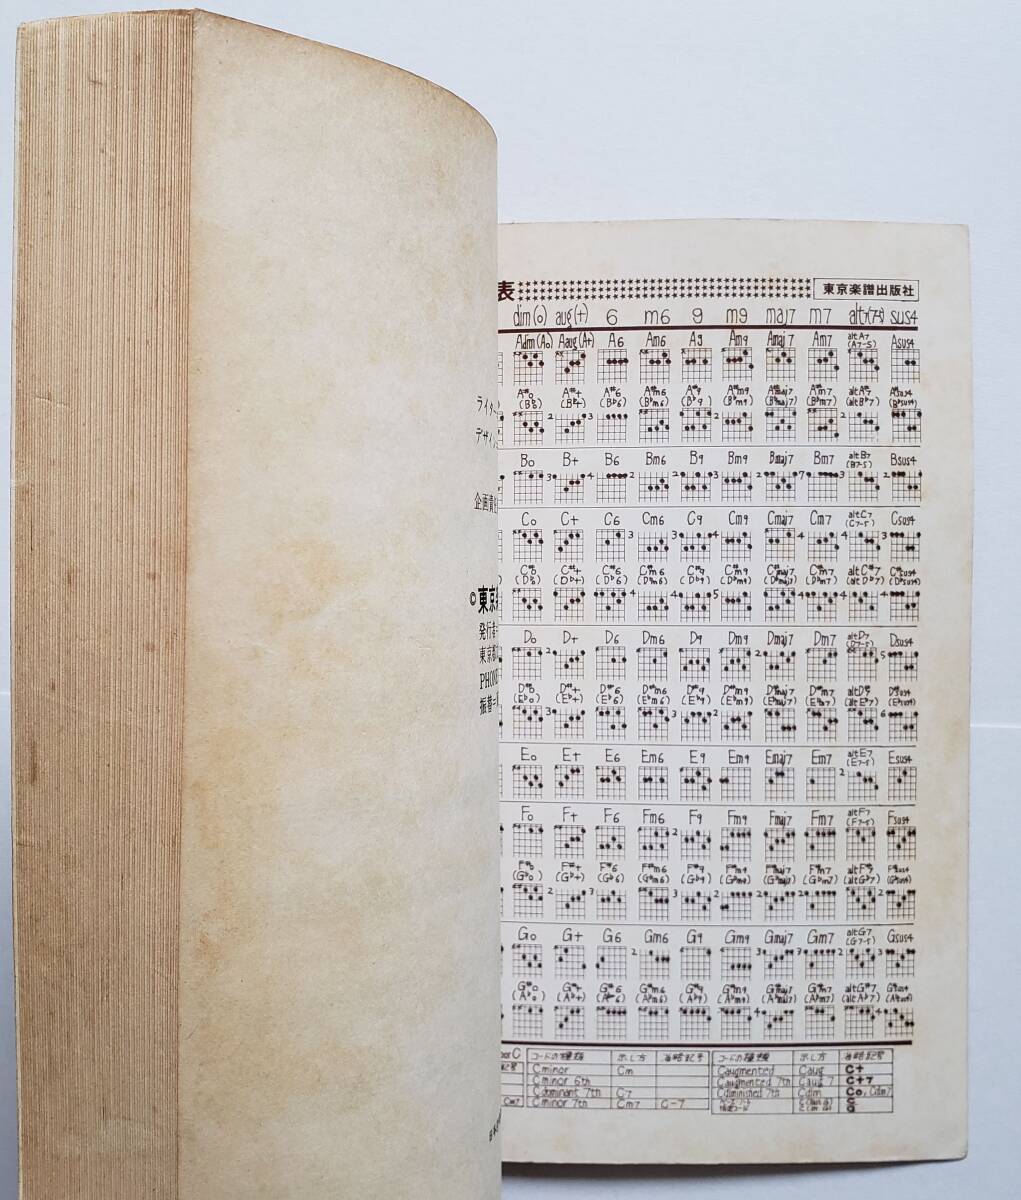 表 東京楽譜出版社
dim(o) aug(+) 6 m6 9 m9 maj7 m7 alt7(7-5) sus4
Adim(Ao) Aaug(A+) A6 Am6 A9 Am9 Amaj7 Am7 altA7 (A7-5) Asus4
A#o A#+ A#6 A#m6 A#9 A#m9 A#maj7 A#m7 altA#7 A#sus4
(B♭o) (B♭+) (B♭6) (B♭m6) (B♭9) (B♭m9) (B♭maj7) (B♭m7) (altB♭7) (B♭sus4)
Bo B+ B6 Bm6 B9 Bm9 Bmaj7 Bm7 altB7 (B7-5) Bsus4
Co C+ C6 Cm6 C9 Cm9 Cmaj7 Cm7 altC7 (C7-5) Csus4
C#o C#+ C#6 C#m6 C#9 C#m9 C#maj7 C#m7 altC#7 C#sus4
(D♭o) (D♭+) (D♭6) (D♭m6) (D♭9) (D♭m9) (D♭maj7) (D♭m7) (altD♭7) (D♭sus4)
Do D+ D6 Dm6 D9 Dm9 Dmaj7 Dm7 altD7 (D7-5) Dsus4
D#o D#+ D#6 D#m6 D#9 D#m9 D#maj7 D#m7 altD#7 D#sus4
(E♭o) (E♭+) (E♭6) (E♭m6) (E♭9) (E♭m9) (E♭maj7) (E♭m7) (altE♭7) (E♭sus4)
Eo E+ E6 Em6 E9 Em9 Emaj7 Em7 altE7 (E7-5) Esus4
Fo F+ F6 Fm6 F9 Fm9 Fmaj7 Fm7 altF7 (F7-5) Fsus4
F#o F#+ F#6 F#m6 F#9 F#m9 F#maj7 F#m7 altF#7 F#sus4
(G♭o) (G♭+) (G♭6) (G♭m6) (G♭9) (G♭m9) (G♭maj7) (G♭m7) (altG♭7) (G♭sus4)
Go G+ G6 Gm6 G9 Gm9 Gmaj7 Gm7 altG7 (G7-5) Gsus4
G#o G#+ G#6 G#m6 G#9 G#m9 G#maj7 G#m7 altG#7 G#sus4
(A♭o) (A♭+) (A♭6) (A♭m6) (A♭9) (A♭m9) (A♭maj7) (A♭m7) (altA♭7) (A♭sus4)
C コードの種類 示し方 省略記号 コードの種類 示し方 省略記号
Cminor Cm Caugmented Caug C+
Cminor 6th Caugmented 7th Caug7 C+7
Cdominant 7th C7 Cdiminished 7th Cdim Co, Cdim7
Cm7 Cminor 7th Cm7 C-7
ライタ
デザイン
企画責
©東京
発行者
東京都
PHONE
振替